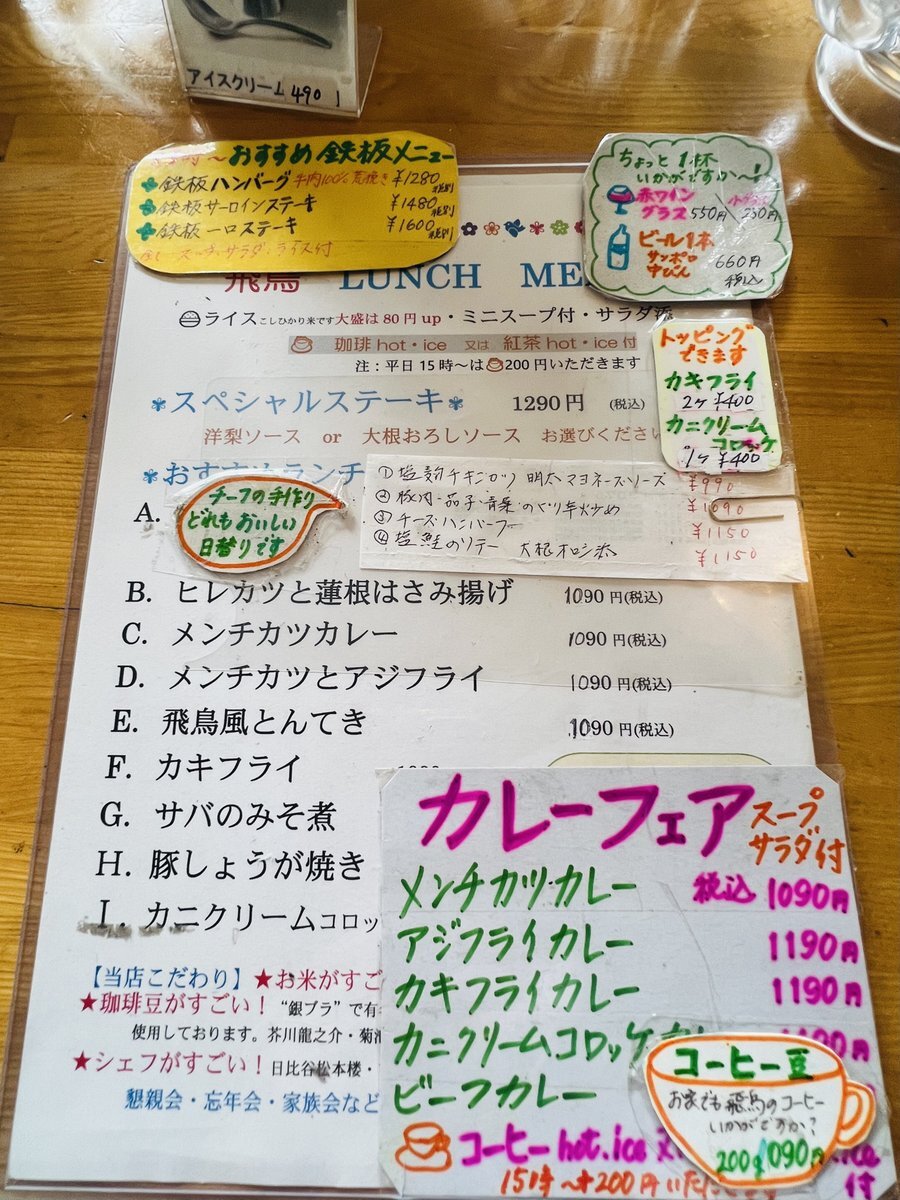 アイスクリーム 490
おすすめ 鉄板メニュー
鉄板 ハンバーグ 牛肉100% 荒挽き ¥1280 税別
鉄板 サーロインステーキ ¥1480 税別
鉄板 一口ステーキ ¥1600 税別
サラダ・ライス付
ちょっと1杯
いかがですか〜!
赤ワイン
グラス 550円
ビール1本
サッポロ
中びん 660円
税込
飛鳥 LUNCH
ライス こしひかり米です 大盛は80円up・ミニスープ付・サラダ
珈琲 hot・ice 又は 紅茶 hot・ice 付
注:平日 15時〜は 200円いただきます
トッピング
できます
カキフライ
2ケ ¥400
カニクリーム
コロッケ
1ケ ¥400
スペシャルステーキ 1290円 (税込)
洋梨ソース or 大根おろしソース お選びくださ
おすすめランチ
A.
チーフの手作り
どれもおいしい
日替りです
① 塩麹チキンカツ 明太マヨネーズソース ¥990
② 豚肉・茄子・青菜のピリ辛炒め ¥1090
③ チーズハンバーグ ¥1150
④ 塩鮭のソテー 大根オロシ添 ¥1150
B. ヒレカツと蓮根はさみ揚げ 1090円(税込)
C. メンチカツカレー 1090円(税込)
D. メンチカツとアジフライ 1090円(税込)
E. 飛鳥風とんてき 1090円(税込)
F. カキフライ
G. サバのみそ煮
H. 豚しょうが焼き
I. カニクリームコロッ
【当店こだわり】★お米がすご
★珈琲豆がすごい! “銀ブラ”で有
使用しております。芥川龍之介・菊
★シェフがすごい! 日比谷松本楼・
懇親会・忘年会・家族会など
カレーフェア スープ
サラダ付
メンチカツカレー 税込 1090円
アジフライカレー 1190円
カキフライカレー 1190円
カニクリームコロッケ
ビーフカレー
コーヒー hot.ice
付
15時〜+200円
コーヒー豆
お家でも飛鳥のコーヒー
いかがですか?
200g 1090円